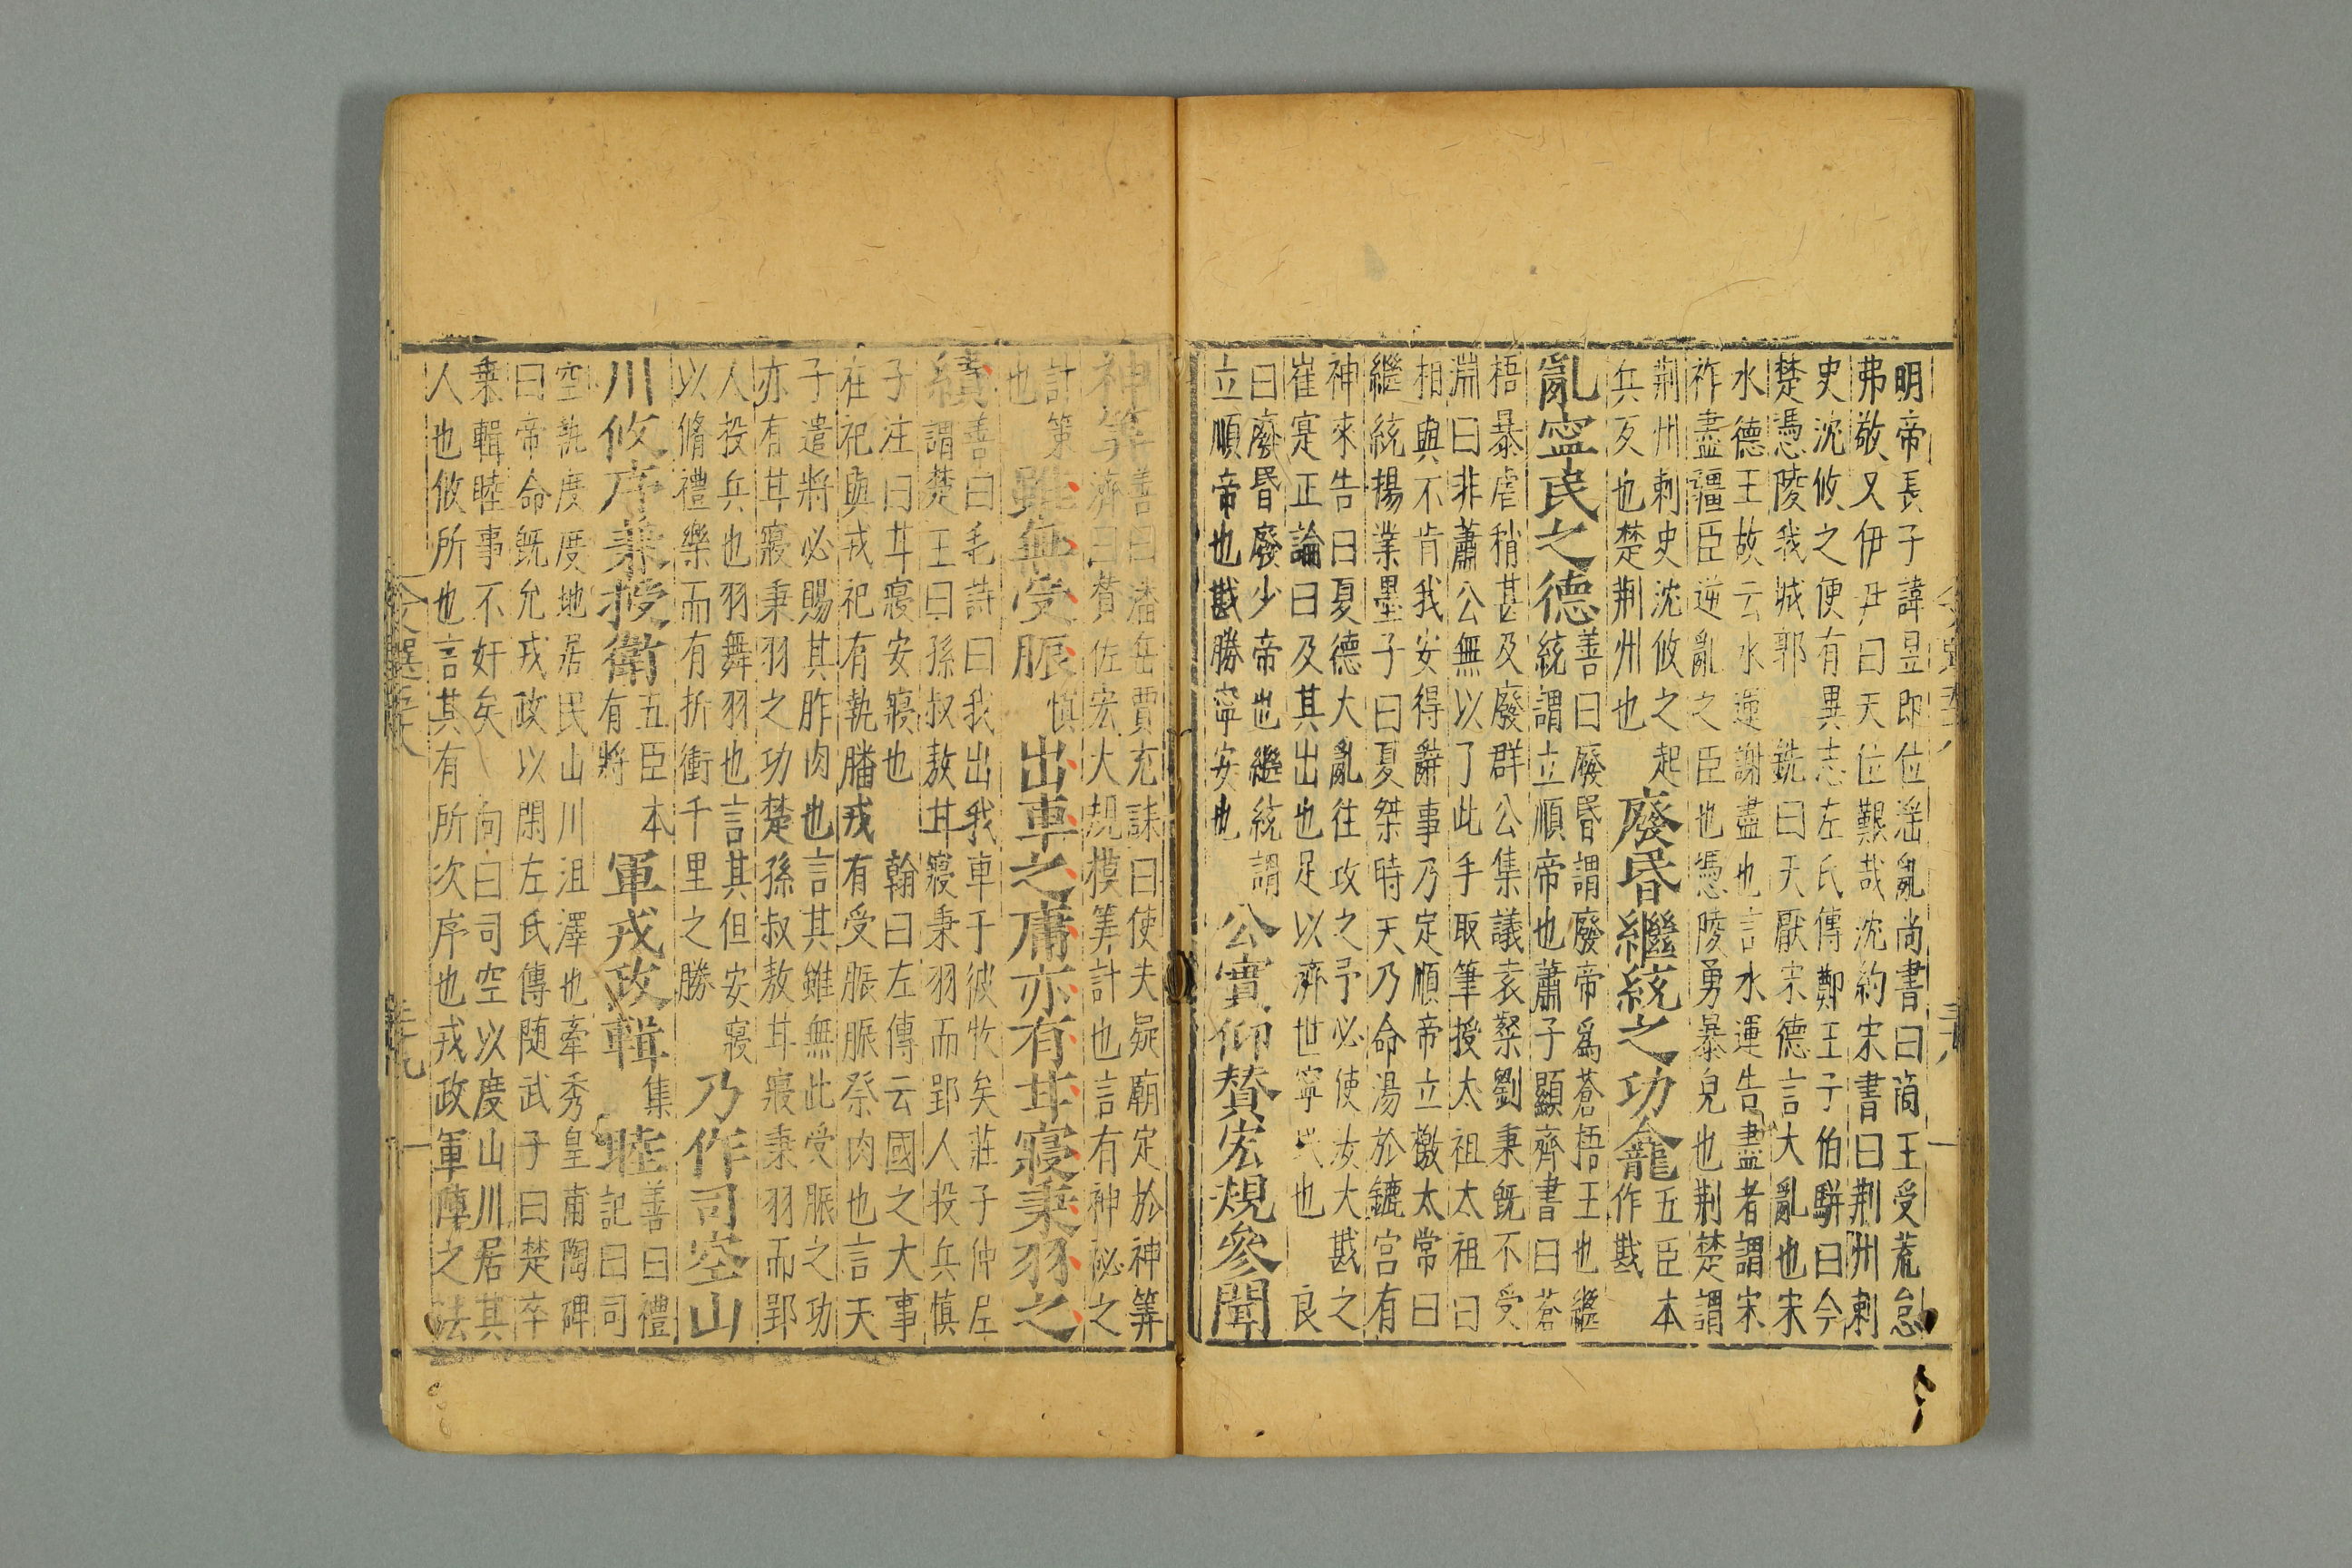 明帝長子諱昱即位滛亂尚書曰商王受荒怠
弗敬又伊尹曰天位艱哉沈約宋書曰荆州刺
史沈攸之便有異志左氏傳鄭王子伯駢曰今
楚憑陵我城郭銑曰天厭宋德言大亂也宋
水德王故云水運謝盡也言水運告盡者謂宋
祚盡疆臣逆亂之臣也憑陵勇暴皃也荆楚謂
荆州刺史沈攸之起
兵反也楚荆州也
廢昬繼統之功龕
五臣本
作戡
亂寍民之德
善曰廢昬謂廢帝爲蒼梧王也繼
統謂立順帝也蕭子顯齊書曰蒼
梧暴虐稍甚及廢群公集議袁粲劉秉旣不受
淵曰非蕭公無以了此手取筆授太祖太祖曰
相與不肯我安得辭事乃定順帝立檄太常曰
繼統揚業墨子曰夏桀時天乃命湯於鑣宫有
神來告曰夏德大亂往攻之予必使汝大戡之
崔寔正論曰及其出也足以濟世寧民也 良
曰廢昬廢少帝也繼統謂
立順帝也戡勝寧安也
公實仰賛宏規參聞
神筭
善曰潘岳賈充誄曰使夫疑廟定於神筭
濟曰賛佐宏大規模筭計也言有神祕之
計策
也
雖無受脤
慎
出車之庸亦有苴寢秉羽之
績
善曰毛詩曰我出我車于彼牧矣莊子仲尼
謂楚王曰孫叔敖苴寢秉羽而郢人投兵慎
子注曰苴寢安寢也 翰曰左傳云國之大事
在祀與戎祀有執膰戎有受脤脤祭肉也言天
子遣將必賜其胙肉也言其雖無此受脤之功
亦有苴寢秉羽之功楚孫叔敖苴寢秉羽而郢
人投兵也羽舞羽也言其但安寢
以脩禮樂而有折衝千里之勝
乃作司空山
川攸序兼授衛
五臣本
有將
軍戎政輯
集
睦
善曰禮
記曰司
空執度度地居民山川沮澤也牽秀皇甫陶碑
曰帝命旣允戎政以閑左氏傳随武子曰楚卒
乗輯睦事不奸矣 向曰司空以度山川居其
人也攸所也言其有所次序也戎政軍陣之法